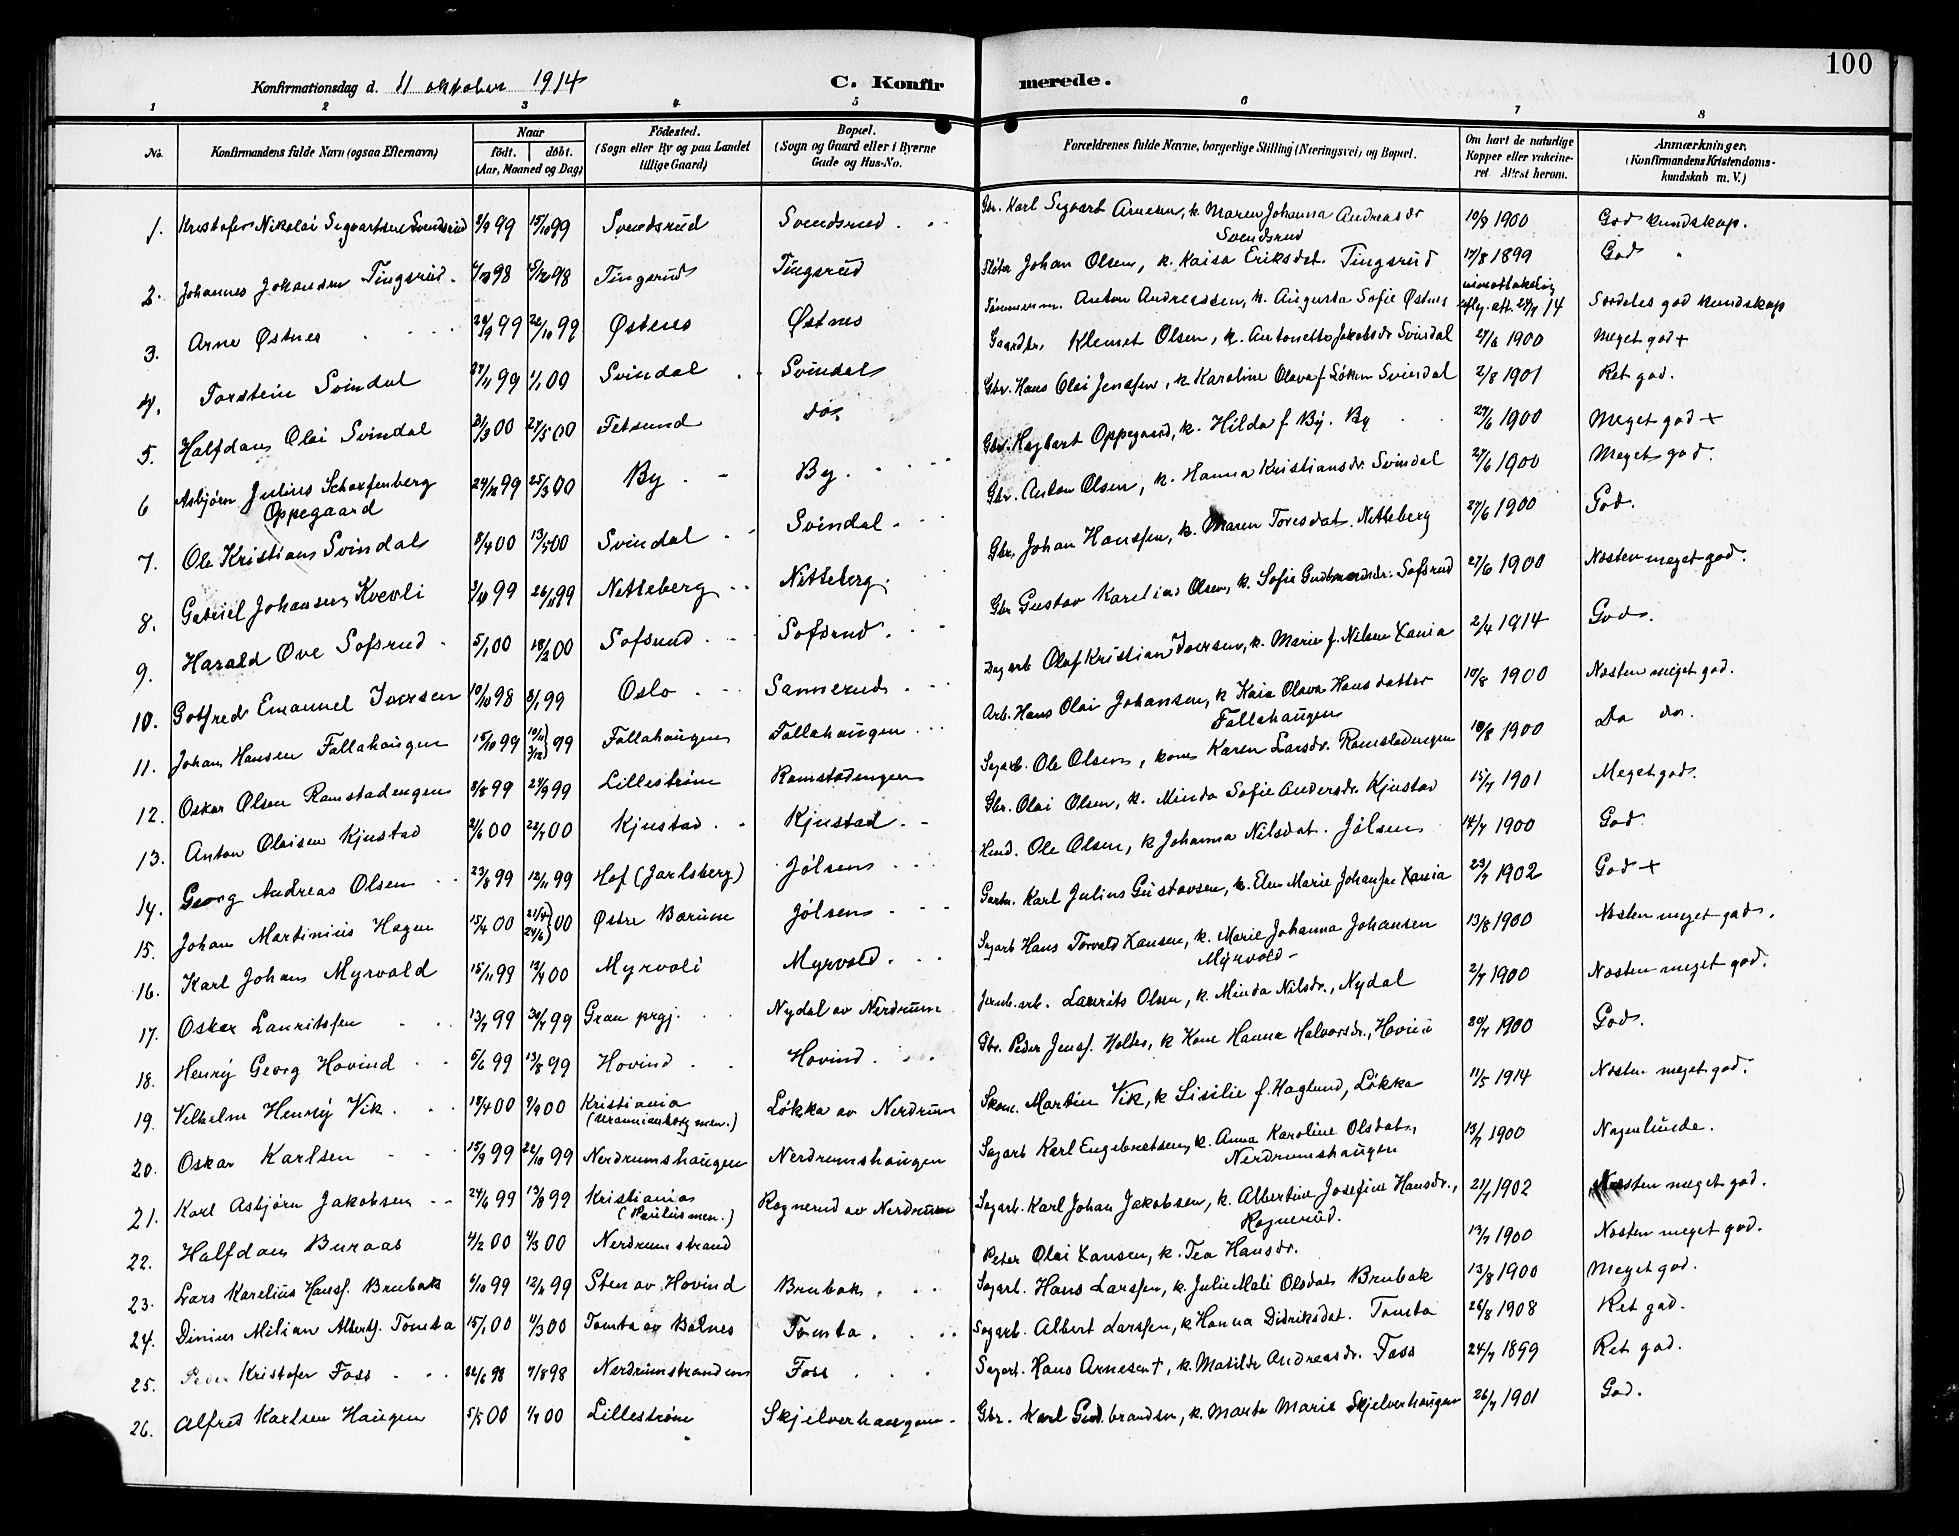 100
Konfirmationsdag d. 11 oktober 1914 C. Konfirmerede.
1 2 3 4 5 6 7 8
No. Konfirmandens fulde Navn (ogsaa Efternavn) Naar født. døbt. (Aar, Maaned og Dag) Fødested. (Sogn eller By og paa Landet tillige Gaard) Bopæl. (Sogn og Gaard eller i Byerne Gade og Hus-No. Forældrenes fulde Navne, borgerlige Stilling (Næringsvei) og Bopæl. Om havt de naturlige Kopper eller vakcineret. Attest herom. Anmærkninger. (Konfirmandens Kristendomskundskab m. V.)
1. Kristofer Nikolai Sigvartsen Svendsrud 99 15/10 99 Svendsrud Svendsrud Gbr. Karl Sigvart Arnesen, k. Maren Johanna Andreasdr 10/8 1900 God kundskap.
Svendsrud
2. Johannes Johansen Tingsrud 98 98 Tingsrud Tingsrud Fløter Johan Olsen, k. Kaisa Eriksdat. Tingsrud 17/8 1899 God "
3. Arne Østnes 99 22/10 99 Østnes Østnes Tømmerm. Anton Andreassen, k. Augusta Sofie Østnes uimottakelig iflg. att. 14 Særdeles god kundskap
4. Torstein Svindal 27/11 99 1/1 00 Svindal Svindal Gaardbr. Klemet Olsen, k. Antonette Jakobsdr Svindal 27/6 1900 Meget god +
5. Halfdan Olai Svindal 3/3 00 27/5 00 Fetsund do. Gbr. Hans Olai Jensen, k. Karoline Olava f. Løken Svindal 2/8 1901 Ret god.
6 Asbjørn Julius Scharfenberg 99 25/3 00 By By. Gbr. Hagbart Oppegaard, k. Hilda f By. By 27/6 1900 Meget god +
Oppegaard
7. Ole Kristian Svindal 8/4 00 13/5 00 Svindal Svindal Gbr. Anton Olsen, k. Hanna Kristiansdr. Svindal 27/6 1900 Meget god.
8. Gabriel Johansen Kvevli 99 26/11 99 Netteberg Netteberg. Gbr. Johan Hansen, k. Maren Toresdat. Netteberg 27/6 1900 God.
9. Harald Ove Sofsrud 5/1 00 18/2 00 Sofsrud Sofsrud. Gbr Gustav Karelius Olsen, k. Sofie Gudbrandsdr. Sofsrud 27/6 1900 Næsten meget god.
10. Gotfred Emanuel Iversen 10/10 98 8/1 99 Oslo Sannerud Dagarb Olaf Kristian Iversen, k. Marie f. Nilsen Xania 2/4 1914 God.
11. Johan Hansen Fallahaugen 15/10 99 99 Fallahaugen Fallahaugen Arb. Hans Olai Johansen, k Kaia Olava Hansdatter 10/8 1900 Næsten meget god.
Fallahaugen
12. Oskar Olsen Ramstadengen 8/8 99 24/9 99 Lillestrøm Ramstadengen Sagarb. Ole Olsen, kone Karen Larsdr. Ramstadengen 10/8 1900 Do do.
13. Anton Olaisen Kjustad 00 22/7 00 Kjustad Kjustad Gbr. Olai Olsen, k. Minda Sofie Andersdr. Kjustad 15/7 1901 Meget god.
14. Georg Andreas Olsen 23/8 99 12/11 99 Hof (Jarlsberg) Jølsen Ole Olsen, k Johanna Nilsdat. Jølsen 14/7 1900 God
15. Johan Martinius Hagen 15/4 00 00 Østre Bærum Jølsen Gartn. Karl Julius Gustavsen, k. Elen Marie Johansen Xania 23/7 1902 God +
16. Karl Johan Myrvold 15/11 99 00 Myrvoli Myrvold. Sagarb Hans Torvald Hansen, k. Marie Johanna Johansen 13/8 1900 Næsten meget god.
Myrvold
17. Oskar Lauritsen 13/7 99 30/7 99 Gran prgj. Nydal av Nerdrum Jernb.arb. Laurits Olsen, k. Minda Nilsdr., Nydal 2/7 1900 Næsten meget god.
18. Henry Georg Hovind 5/6 99 13/8 99 Hovind Hovind Gbr. Peder Jens. Holter, k Kone Hanna Halvorsdr., Hovin 1900 God.
19. Vilhelm Henry Vik 18/4 00 9/9 00 Kristiania Løkka av Nerdrum Skom. Martin Vik, k Lisilie f. Haglund, Løkka 11/5 1914 Næsten meget god.
(Uranienborg men.)
20. Oskar Karlsen 15/9 99 22/10 99 Nerdrumshaugen Nerdrumshaugen Sagarb Karl Engebretsen, k. Anna Karoline Olsdat., 13/7 1900 Nogenlunde.
Nerdrumshaugen
21. Karl Asbjørn Jakobsen 24/6 99 13/8 99 Kristiania Rognerud av Nerdrum Sagarb. Karl Johan Jakobsen, k. Albertine Josefine Hansdr., 21/7 1902 Næsten meget god.
(Paulus men.) Rognerud.
22. Halfdan Buraas 4/2 00 4/3 00 Nerdrumstrand Peter Olai Hansen, k. Tea Hansdr. 13/7 1900 Næsten meget god.
23. Lars Karelius Hans. Brubak 6/10 99 99 Sten av Hovind Brubak Sagarb. Hans Larsen, k. Julie Mali Olsdat. Brubak 13/8 1900 Meget god.
24. Dinius Milian Alberts. Tomta 15/1 00 4/3 00 Tomta av Balnes Tomta Sagarb. Albert Larsen, k. Hanna Didriksdat. Tomta 26/8 1908 Ret god.
25. Peder Kristofer Foss 22/6 98 7/8 98 Nerdrumstranden Foss Sagarb. Hans Arnesen †, k. Matilde Andreasdr. Foss 24/7 1899 Ret god.
26. Alfred Karlsen Haugen 5/5 00 1/7 00 Lillestrøm Skjelverhaugen Gbr. Karl Gudbrandsen, k. Marta Marie Skjelverhaugen 26/7 1901 God.